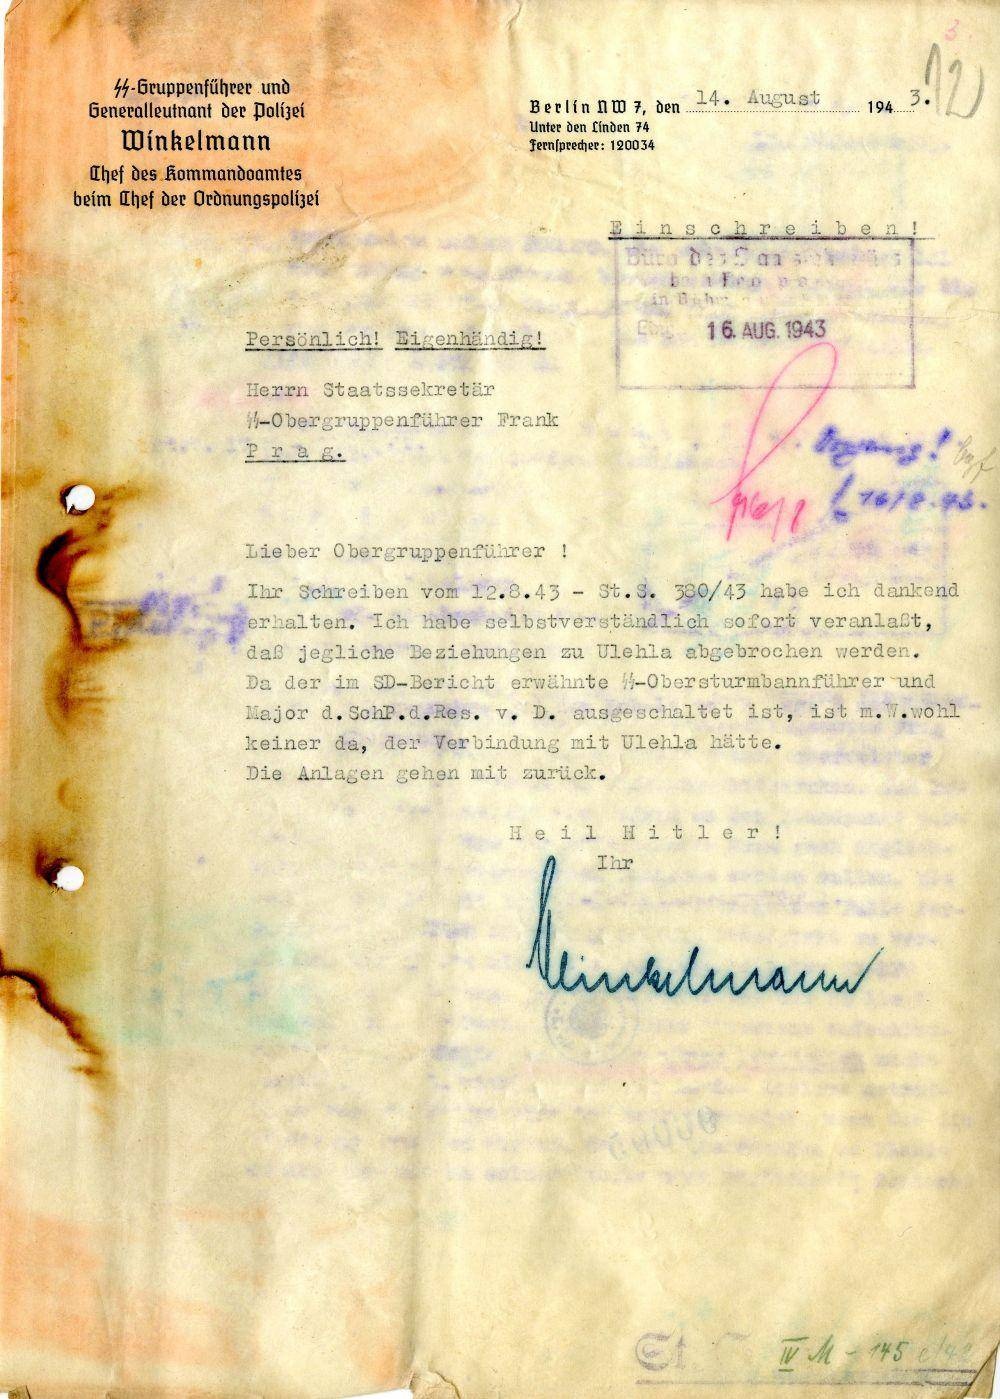 3.
12
ᛋᛋ-Gruppenführer und
Generalleutnant der Polizei
Winkelmann
Chef des Kommandoamtes
beim Chef der Ordnungspolizei
Berlin NW 7, den 14. August 1943.
Unter den Linden 74
Fernsprecher: 120034
Einschreiben!
Büro des
in
16. AUG. 1943
Persönlich! Eigenhändig!
Herrn Staatssekretär
ᛋᛋ-Obergruppenführer Frank
Prag.
16/8
16/8.43.
Lieber Obergruppenführer !
Ihr Schreiben vom 12.8.43 - St.S. 380/43 habe ich dankend
erhalten. Ich habe selbstverständlich sofort veranlaßt,
daß jegliche Beziehungen zu Ulehla abgebrochen werden.
Da der im SD-Bericht erwähnte ᛋᛋ-Obersturmbannführer und
Major d.SchP.d.Res. v. D. ausgeschaltet ist, ist m.W.wohl
keiner da, der Verbindung mit Ulehla hätte.
Die Anlagen gehen mit zurück.
Heil Hitler!
Ihr
Winkelmann
St.
IV M - 145